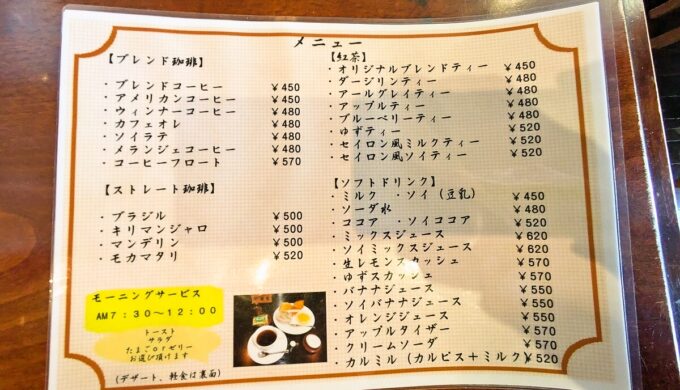 メニュー
【ブレンド珈琲】
・ブレンドコーヒー ￥450
・アメリカンコーヒー ￥450
・ウィンナーコーヒー ￥480
・カフェオレ ￥480
・ソイラテ ￥480
・メランジェコーヒー ￥480
・コーヒーフロート ￥570
【ストレート珈琲】
・ブラジル ￥500
・キリマンジャロ ￥500
・マンデリン ￥500
・モカマタリ ￥520
モーニングサービス
AM7：30～12：00
トースト
サラダ
たまごorゼリー
お選び頂けます
(デザート、軽食は裏面)
【紅茶】
・オリジナルブレンドティー ￥450
・ダージリンティー ￥480
・アールグレイティー ￥480
・アップルティー ￥480
・ブルーベリーティー ￥480
・ゆずティー ￥520
・セイロン風ミルクティー ￥520
・セイロン風ソイティー ￥520
【ソフトドリンク】
・ミルク ・ソイ（豆乳） ￥450
・ソーダ水 ￥480
・ココア ・ソイココア ￥520
・ミックスジュース ￥620
・ソイミックスジュース ￥620
・生レモンスカッシュ ￥570
・ゆずスカッシュ ￥570
・バナナジュース ￥550
・ソイバナナジュース ￥550
・オレンジジュース ￥550
・アップルタイザー ￥570
・クリームソーダ ￥570
・カルミル（カルピス＋ミルク）￥520